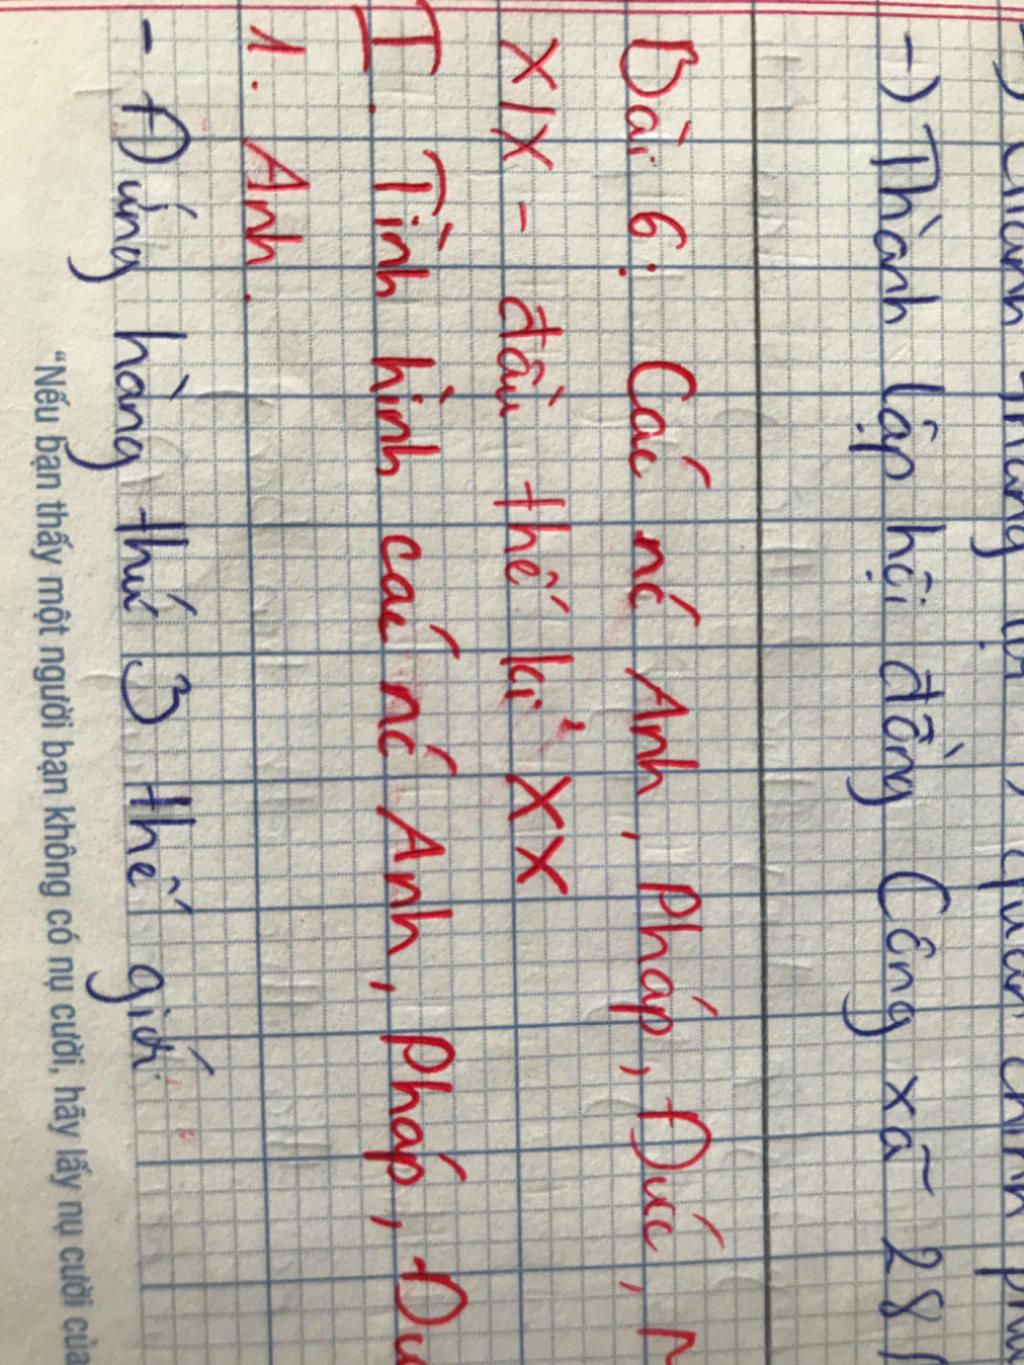 → Thành lập hội đồng Công xã ~ 28
Bài 6: Các nć Anh, Pháp, Đức,
XIX - đầu thế kỉ XX
I. Tình hình các nć Anh, Pháp,
1. Anh.
- Đứng hàng thứ 3 thế giới.
"Nếu bạn thấy một người bạn không có nụ cười, hãy lấy nụ cười của